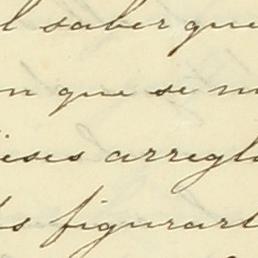 l saber que
n que se m
ieses arregla
s figurart